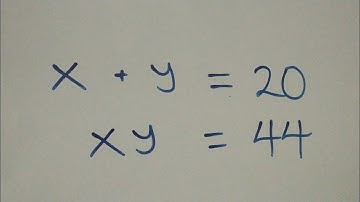 x + y = 20
xy = 44